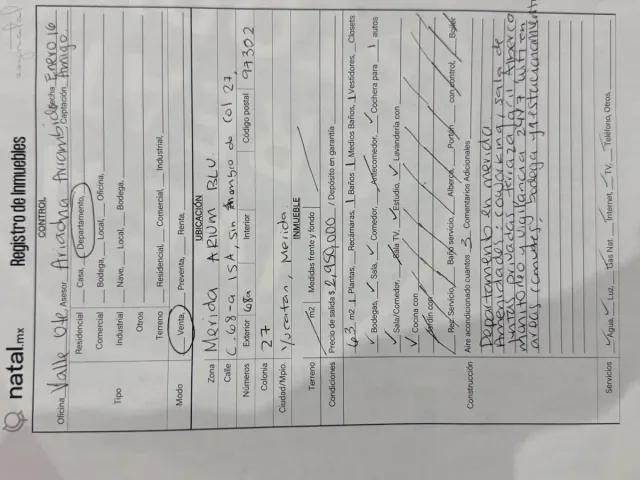 natal.mx Registro de Inmuebles
CONTROL
Oficina Valle Ote Asesor Ariadna Arrambide Fecha Enero 16
Captación Amigo
Tipo
Residencial Casa, Departamento,
Comercial Bodega, Local, Oficina,
Industrial Nave, Local, Bodega,
Otros
Terreno Residencial, Comercial, Industrial,
Modo Venta, Preventa, Renta,
UBICACIÓN
Zona Merida ARIUM BLU
Calle C. 68-a 15A, Sin
Col 27,
Números Exterior 68a Interior Código postal 97302
Colonia 27
Ciudad/Mpio. Yucatan, Merida.
INMUEBLE
Terreno m2 Medidas frente y fondo
Condiciones Precio de salida $ 2,950,000 / Depósito en garantía
Construcción
63 m2 1 Plantas, Recámaras, 1 Baños 1 Medios Baños, 1 Vestidores, Closets
Bodegas, Sala, Comedor, Antecomedor, Cochera para 1 autos
Sala/Comedor, Sala TV, Estudio, Lavandería con
Cocina con
Jardín con
Rec. Servicio, Baño servicio, Alberca, Portón con control, Boiler
Aire acondicionado cuantos 3 Comentarios Adicionales
Departamento en merida
Amenidades: coworking, sala de
Juntas privadas terraza, grill Alberca
monitoreo y vigilancia 24x7 Wifi en
areas comunes, bodega y estacionamiento
Servicios Agua, Luz, Gas Nat. Internet, TV, Teléfono, Otros,